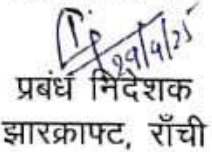 29/4/25
प्रबंध निदेशक
झारक्राफ्ट, राँची